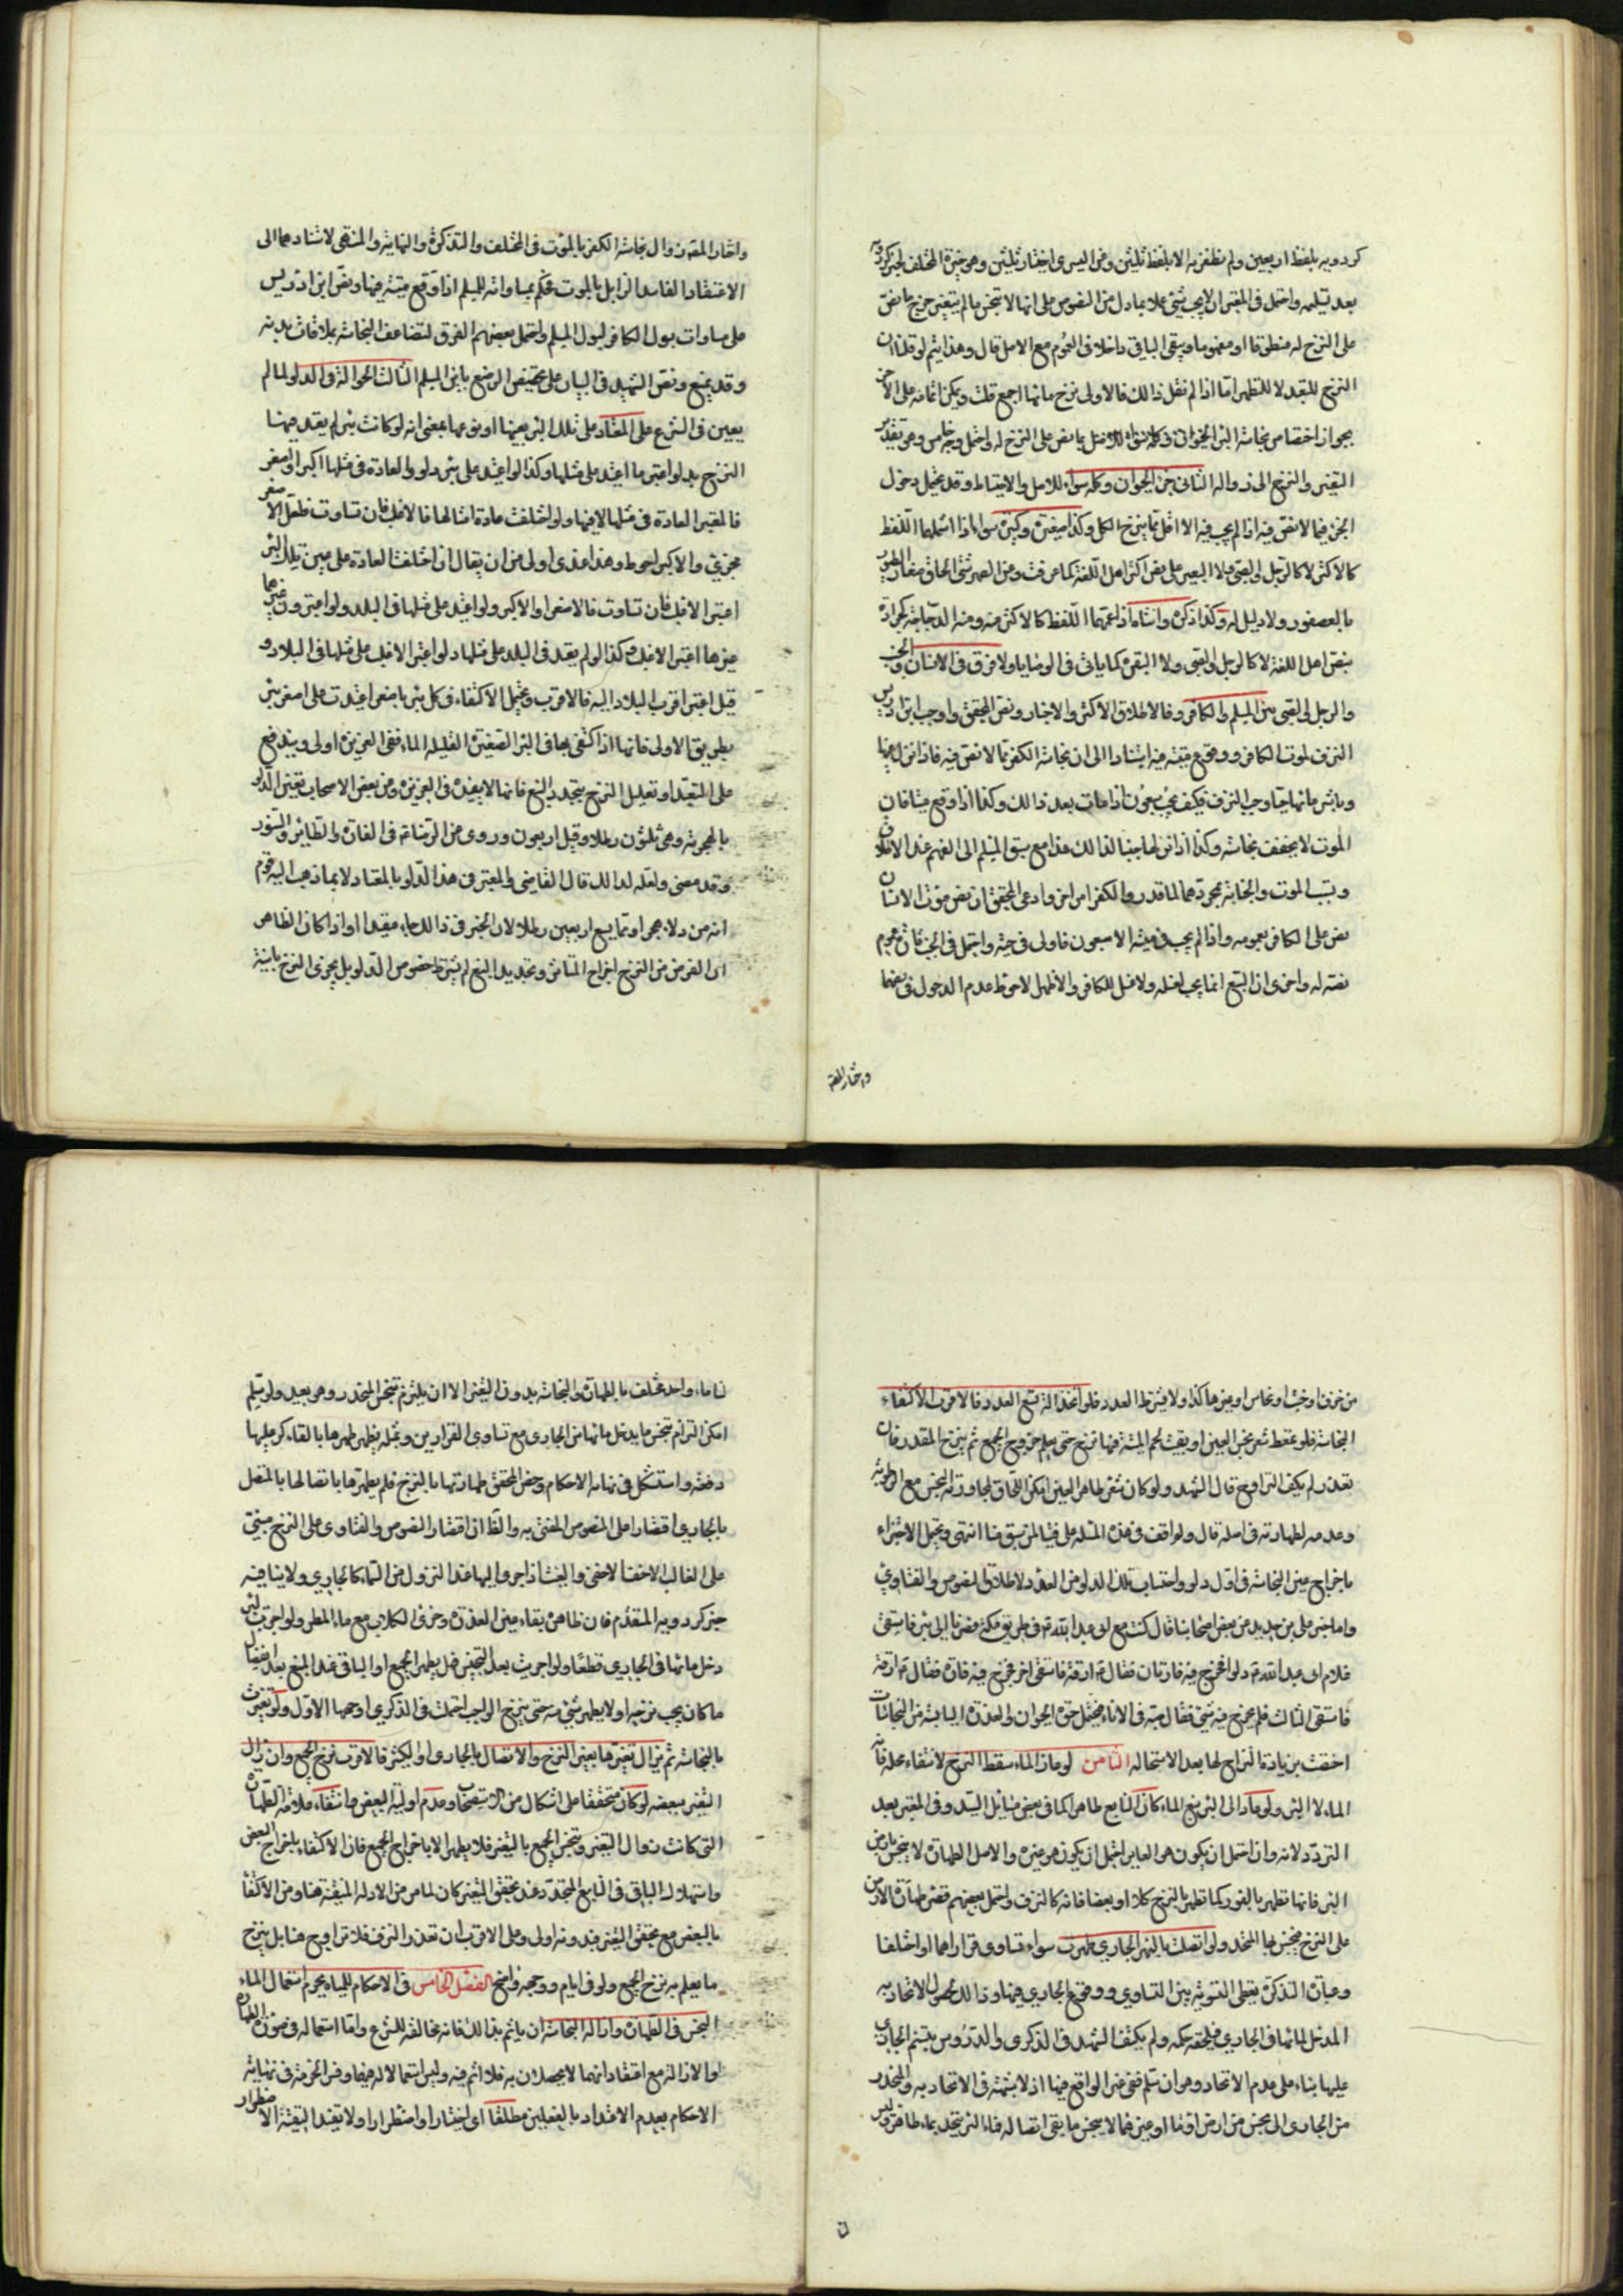 كردويه بلفظ اربعين ولم نظفر به الا بلفظ ثلثين وفى اختار ثلثين وهو خيرة المختلف لخبر كردويه
بعد تسليمه واحتمل فى المعتبر ان لا يجب شئ عملا بما دل من النصوص على انها لا تنجس ما لم يتغير خرج ما نص
على النزح له منطوقا او مفهوما ويبقى الباقى داخلا فى العموم مع الاصل قال وهذا يتم لو قلنا ان
النزح للتعبد لا للتطهير اما اذا لم نقل ذلك فالاولى نزح مائها اجمع قلت ويمكن اتمامه على الاخر
بجواز اختصاص نجاسة البئر وما سواه للاصل بما نص على النزح له واحتمل وجه خامس وهو تقدير
التغير والنزح الى زواله الثانى جزء الحيوان وكله سواء للاصل والاحتياط وقد يحتمل دخول
الجزء فيما لا نص فيه اذا لم يجب فيه الا اقل مما ينزح للكل وكذا صغيره وكبيره سواء اذا شملهما اللفظ
كالاكثر لا كالرجل والصبى ولا البعير على نص اكثر اهل اللغة كما عرفت وعن الصهرشتى الحاق صغار الطيور
بالعصفور ولا دليل له وكذا ذكره وانثاه اذا عمهما اللفظ كالاكثر ومنه الدجاجة
بنص اهل اللغة لا كالرجل والصبى ولا البقرة كما ياتى فى الوصايا ولا فرق فى الانسان والجنب
والرجل والصبى بين المسلم والكافر وفاقا لاطلاق الاكثر والاخبار ونص المحقق واوجب ابن ادريس
النزف لموت الكافر ووقوع ميته فيه استنادا الى ان نجاسة الكفر مما لا نص فيه فاذا نزل اليها
وباشر مائها حيا وجب النزف فكيف يجب سبعون اذا مات بعد ذلك وكذا اذا وقع ميتا فان
الموت لا يخفف نجاسته وكذا اذا نزلها جنبا لذلك هذا مع سبق المسلم الى الفهم عند الاطلاق
وتسبب الموت والجنابة بمجردهما لما قدر والكفر امر اخر وادعى المحقق ان نص موت الانسان
نص على الكافر بعمومه واذا لم يجب فى ميته الا سبعون فاولى فى حيه واحتمل فى الجنب عموم
نصه له واخرى ان السبع انما يجب لغسله ولا غسل للكافر والاظهر الاحوط عدم الدخول فى نصهما
واختار المصنف
واختار المصنف زوال نجاسة الكفر بالموت فى المختلف والتذكرة والنهاية والمنتهى لاستنادهما الى
الاعتقاد الفاسد الزايل بالموت فحكم بمساواته للمسلم اذا وقع ميته فيها ونص ابن ادريس
على مساواة بول الكافر لبول المسلم واحتمل بعضهم الفرق لتضاعف النجاسة بملاقات بدنه
وقد يمنع ونص الشهيد فى البيان على تخصيص الرضيع بابن المسلم الثالث الحوالة فى الدلو لما لم
يعين فى الشرع على المعتاد على تلك البئر بعينها او نوعها بمعنى انه لو كانت بئر لم يعتد فيها
النزح بدلو اعتبر ما اعتيد على مثلها وكذا لو اعتيد على بئر دلو والعادة فى مثلها اكبر او اصغر
فالمعتبر العادة فى مثلها لا فيها ولو اختلفت عادة امثالها فالاغلب فان تساوت فلعل الاصغر
مجزئ والاكبر احوط وهذا عندى اولى من ان يقال ان اختلفت العادة على عين تلك البئر
اعتبر الاغلب فان تساوت فالاصغر او الاكبر ولو اعتيد على مثلها فى البلد ولو اعتبر وغيرها
غيرها اعتبر الاغلب وكذا لو لم يعتد فى البلد على مثلها دلو اعتبر الاغلب على مثلها فى البلاد و
قيل اعتبر اقرب البلاد اليه فالاقرب ويحتمل الاكتفاء فى كل بئر باصغر ما اعتيدت على اصغر بئر
بطريق الاولى فانها اذا اكتفى بها فى البئر الصغيرة القليلة الماء ففى الغزيرة اولى ويندفع
على التعبد او تعليل النزح بتجدد النبع فانها لا يفيده فى الغزيرة وعن بعض الاصحاب تعين الدلو
بالهجرية وهى ثلثون رطلا وقيل اربعون وروى عن الرضا فى الفارة والطاير والسنور
وقد مضى ولعله لذلك قال القاضى والمعتبر فى هذا الدلو بالمعتاد لا بما ذهب اليه قوم
انه من دلاء هجر او ما يسع اربعين رطلا لان الخبر فى ذلك جاء مقيدا او اذا كان الظاهر
ان الغرض من النزح اخراج المتاثر وتجديد النبع لم يشترط خصوص الدلو بل يجزى النزح بانية
من خزف او خشب او نحاس او غيرها كذا ولا يشترط العدد فلو اتخذ آلة تسع العدد فالاقرب الاكتفاء
النجاسة فلو تمعط شعر نجس العين او بقيت لحم الميتة فيها نزح حتى يعلم خروج الجميع ثم ينزح المقدر فان
تعذر لم يكف التراوح قال الشهيد ولو كان شعر طاهر العين امكن اللحاق لمجاورته النجس مع الرطوبة
وعدمه لطهارته فى اصله قال ولم اقف فى هذه المسئلة على فتيا لمن سبق منا انتهى ويحتمل الاجتزاء
باخراج عين النجاسة فى اول دلو واحتساب تلك الدلو من العدد لاطلاق النصوص والفتاوى
واما خبر على بن حديد عن بعض اصحابنا قال كنت مع ابى عبد الله ع فى طريق مكة فصرنا الى بئر فاستقى
غلام ابى عبد الله ع دلوا فخرج فيه فارتان فقال ع ارقه فاستقى اخر فخرج فيه فارة فقال ع ارقه
فاستقى الثالث فلم يخرج فيه شئ فقال صبه فى الاناء فيحتمل حمل الحيوان والعذرة اليابسة من النجاسات
اختصت بزيادة النزاح لها بعد الاستحالة الثامن لو غار الماء سقط النزح لانتفاء محله فانه
الماء لا البئر ولو عاد الى البئر نبع الماء كان النابع طاهرا كما فى بعض مسائل السيد وفى المعتبر بعد
التردد لانه وان احتمل ان يكون هو الغاير احتمل ان يكون هو غيره والاصل الطهارة لا ينجس بارض
البئر فانها تطهر بالغور كما تطهر بالنزح كلا او بعضا فانه كالنزف واحتمل بعضهم قصر طهارة الارض
على النزح فينجس بها المتجدد ولو اتصلت بالنهر الجارى طهرت سواء تساوى قراراهما او اختلفا
وعبارة التذكرة يعطى التسوية بين التساوى ووقوع الجارى فيها وذلك لحصول الاتحاد به
المدخل لمائها فى الجارى فيلحقه حكمه ولم يكتف الشهيد فى الذكرى والدروس بتسنم الجارى
عليها بناء على عدم الاتحاد وهو ان سلم ففى غير الواقع فيها اذ لا شبهة فى الاتحاد به والمنحدر
من الجارى الى نجس من ارض او ماء او غيرهما لا ينجس ما بقى اتصاله فماء البئر يتحد بماء طاهر وليس
لنا ماء واحد مختلف بالطهارة والنجاسة بدون التغير الا ان يلتزم تنجس المنحدر وهو بعيد ولو سلم
امكن التزام تنجس ما يدخل مائها من الجارى مع تساوى القرارين وبمثله يظهر طهرها بالقاء كر عليها
دفعة واستشكل فى نهاية الاحكام وخص المحقق طهارتها بالنزح فلم يطهرها باتصالها بالمتصل
بالجارى اقتصارا على المنصوص المفتى به والظ ان اقتصار النصوص والفتاوى على النزح مبنى
على الغالب الاخف والغيث اذا جرى اليها عند النزول من السماء كالجارى ولا ينافيه
خبر كردويه المتقدم فان ظاهره بقاء عين العذرة وخرء الكلاب مع ماء المطر ولو اجريت البئر
دخل مائها فى الجارى قطعا ولو اجريت بعد التنجيس فهل يطهر الجميع او الباقى عند المنبع بعد انفصال
ما كان يجب نزحه او لا يطهر شئ منه حتى ينزح الواجب احتملت فى الذكرى اوجهها الاول ولو تغيرت
بالنجاسة ثم يزال تغيرها بغير النزح والاتصال بالجارى او الكثير فالاقرب نزح الجميع وان زال
التغير ببعضه لو كان متحققا على اشكال من الاستصحاب وعدم اولية البعض وانتفاء علامة الطهارة
التى كانت زوال التغير وتنجس الجميع بالتغير فلا يطهر الا باخراج الجميع فان الاكتفاء باخراج البعض
واستهلاك الباقى فى النابع المتجدد عند تحقق التغير كان لما مر من الادلة المنتفية هنا ومن الاكتفاء
بالبعض مع تحقق التغير فبدونه اولى وعلى الاقرب ان تعذر النزف فلا تراوح هنا بل ينزح
ما يعلم به نزح الجميع ولو فى ايام ووجهه واضح الفصل الخامس فى الاحكام للمياه يحرم استعمال الماء
النجس فى الطهارة وازالة النجاسة ان ياثم بذلك فانه مخالفة للشرع واما استعماله فى صورة الطهارة
او الازالة مع اعتقاد انهما لا يحصلان به فلا اثم فيه وليس استعمالا له فيهما وفسر الحرمة فى نهاية
الاحكام بعدم الاعتداد بالفعلين مطلقا اى اختيارا واضطرارا ولا يفيد التقية الاضطرار